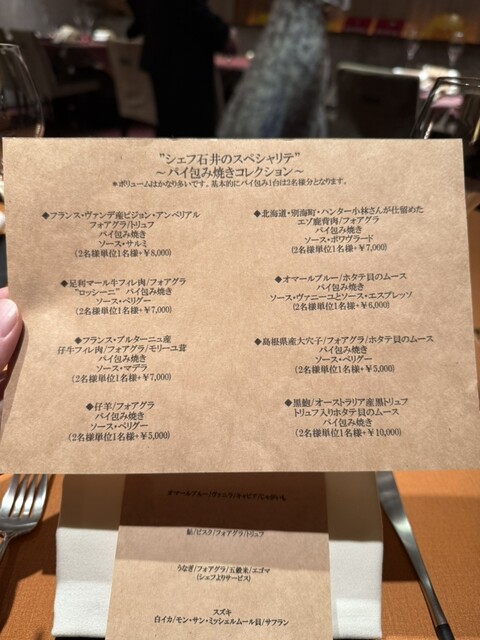 "シェフ石井のスペシャリテ"
~パイ包み焼きコレクション~
*ボリュームはかなり多いです。基本的にパイ包み1台は2名様分となります。
◆フランス・ヴァンデ産ピジョン・アンペリアル
フォアグラ/トリュフ
パイ包み焼き
ソース・サルミ
(2名様単位1名様+¥8,000)
◆足利マール牛フィレ肉/フォアグラ
"ロッシーニ" パイ包み焼き
ソース・ペリグー
(2名様単位1名様+¥7,000)
◆フランス・ブルターニュ産
仔牛フィレ肉/フォアグラ/モリーユ茸
パイ包み焼き
ソース・マデラ
(2名様単位1名様+¥7,000)
◆仔羊/フォアグラ
パイ包み焼き
ソース・ペリグー
(2名様単位1名様+¥5,000)
◆北海道・別海町・ハンター小林さんが仕留めた
エゾ鹿背肉/フォアグラ
パイ包み焼き
ソース・ポワヴラード
(2名様単位1名様+¥7,000)
◆オマールブルー/ホタテ貝のムース
パイ包み焼き
ソース・ヴァニーユとソース・エスプレッソ
(2名様単位1名様+¥6,000)
◆島根県産大穴子/フォアグラ/ホタテ貝のムース
パイ包み焼き
ソース・ペリグー
(2名様単位1名様+¥5,000)
◆黒鮑/オーストラリア産黒トリュフ
トリュフ入りホタテ貝のムース
パイ包み焼き
(2名様単位1名様+¥10,000)
オマールブルー/ヴァニラ/キャビア/じゃがいも
鮎/ビスク/フォアグラ/トリュフ
うなぎ/フォアグラ/五穀米/エゴマ
(シェフよりサービス)
スズキ
白イカ/モン・サン・ミッシェルムール貝/サフラン